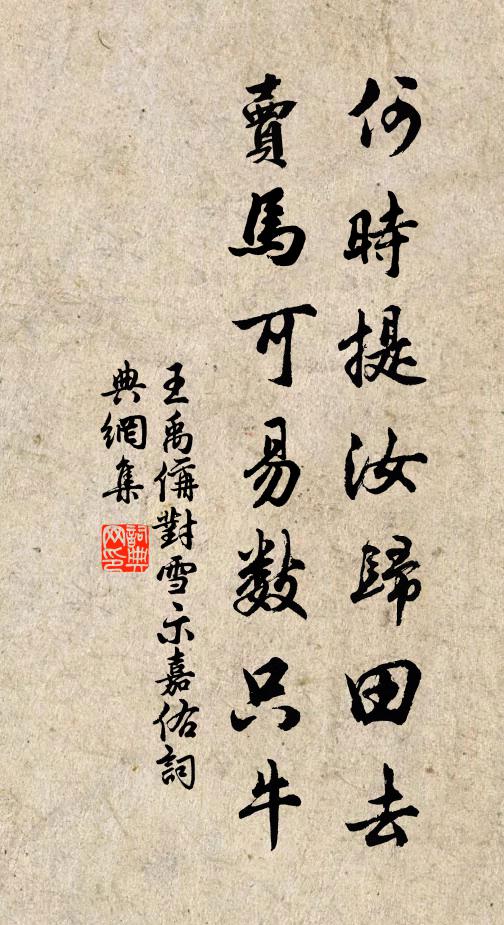 何時提汝歸田去
賣馬可易數只牛
王禹偁對雪示嘉佑詞
典網集
詞典网印